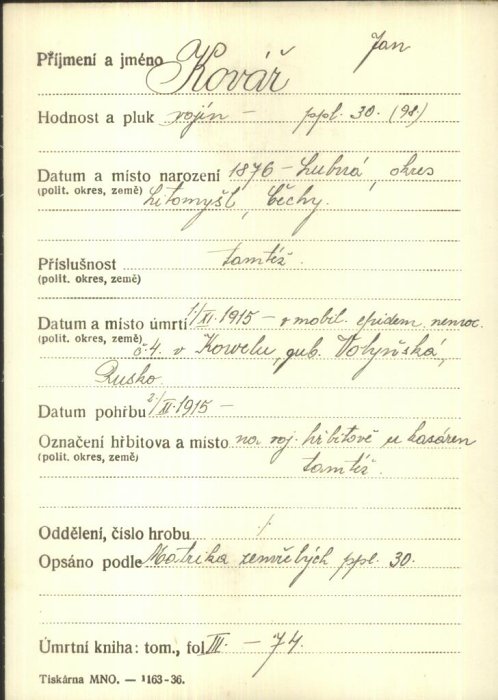 Příjmení a jméno Kovář Jan
Hodnost a pluk vojín – ppl. 30. (98)
Datum a místo narození 1876 – Lubná, okres
(polit. okres, země) Litomyšl, Čechy.
Příslušnost tamtéž.
(polit. okres, země)
Datum a místo úmrtí 1./XI. 1915 – v mobil. epidem. nemoc.
(polit. okres, země) č. 4. v Kowelu, gub. Volyňská,
Rusko.
Datum pohřbu 2./XI. 1915 –
Označení hřbitova a místo na voj. hřbitově u kasáren
(polit. okres, země) tamtéž.
Oddělení, číslo hrobu
Opsáno podle Matrika zemřelých ppl. 30.
Úmrtní kniha: tom., fol III. – 74.
Tiskárna MNO. — 1163-36.